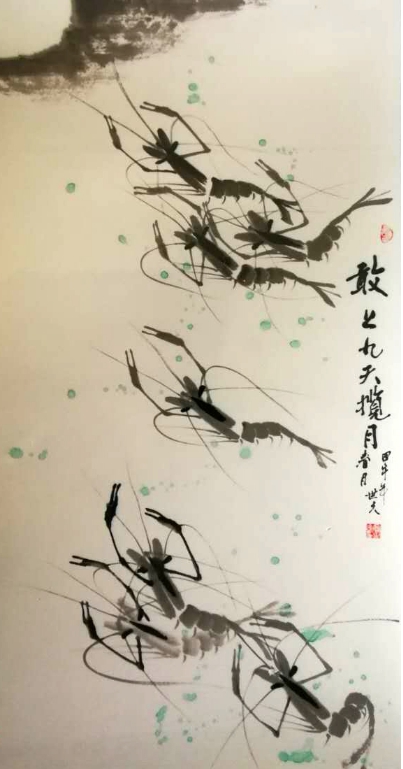 敢上九天揽月
甲午年
春月 世久